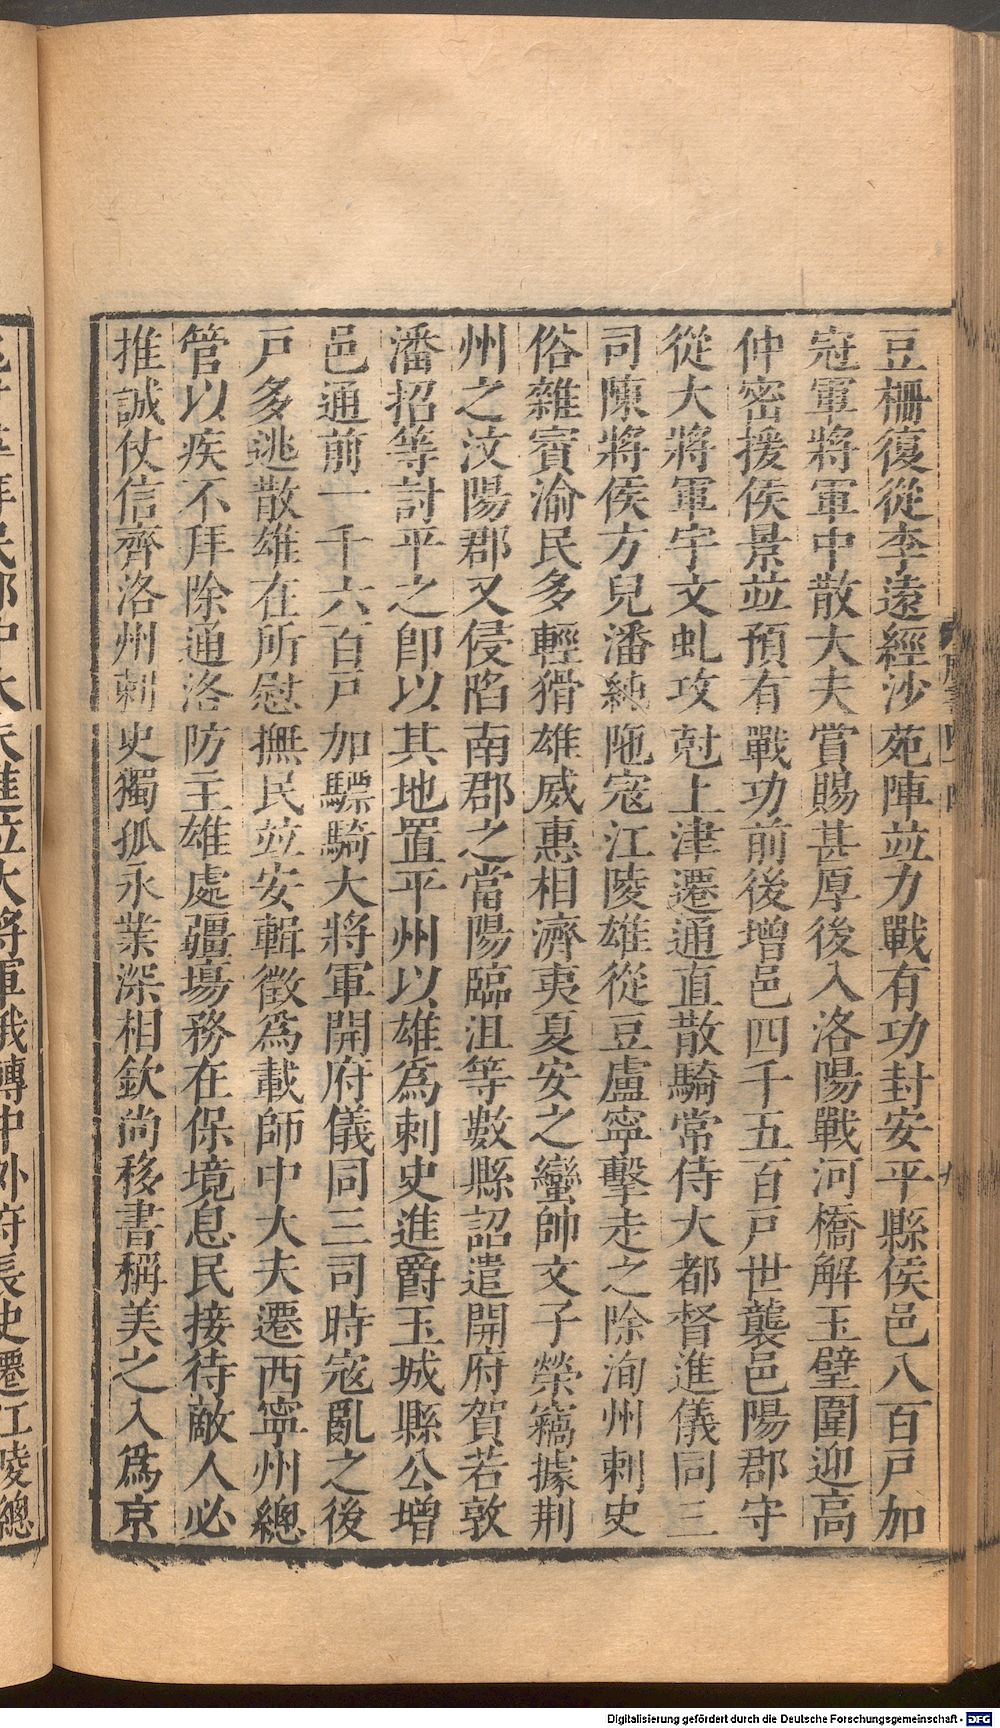 豆柵復從李遠經沙苑陣竝力戰有功封安平縣侯邑八百戶加
冠軍將軍中散大夫賞賜甚厚後入洛陽戰河橋解玉壁圍迎高
仲密援侯景竝預有戰功前後增邑四千五百戶世襲邑陽郡守
從大將軍宇文虬攻尅上津遷通直散騎常侍大都督進儀同三
司陳將侯方兒潘純陁寇江陵雄從豆盧寧擊走之除洵州刺史
俗雜賓渝民多輕猾雄威惠相濟夷夏安之蠻帥文子榮竊據荆
州之汶陽郡又侵陷南郡之當陽臨沮等數縣詔遣開府賀若敦
潘招等討平之卽以其地置平州以雄爲刺史進爵玉城縣公增
邑通前一千六百戶加驃騎大將軍開府儀同三司時寇亂之後
戶多逃散雄在所慰撫民竝安輯徵爲載師中大夫遷西寧州總
管以疾不拜除通洛防主雄處疆場務在保境息民接待敵人必
推誠仗信齊洛州刺史獨孤永業深相欽尚移書稱美之入爲京
民部中大夫進位大將軍俄轉中外府長史遷江陵總
Digitalisierung gefördert durch die Deutsche Forschungsgemeinschaft - DFG